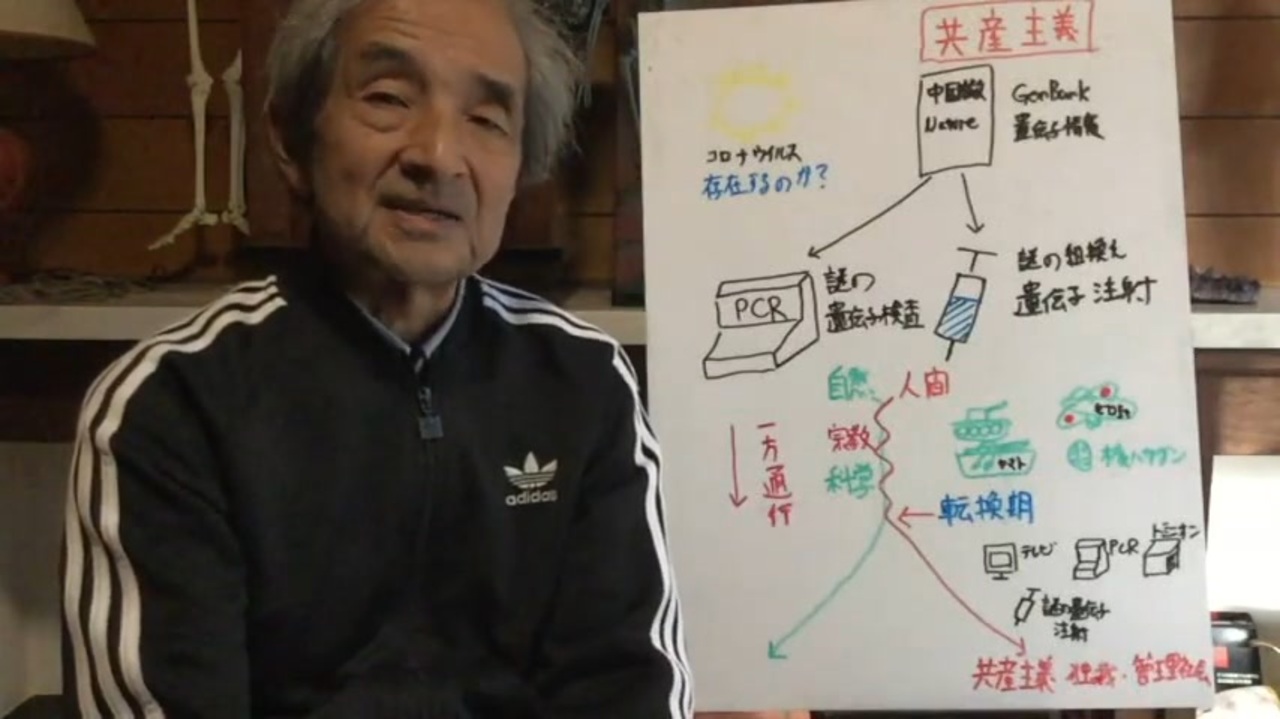 共産主義
中国
Nature
GenBank
遺伝子情報
コロナウイルス
存在するのか?
PCR
謎の
遺伝子検査
謎の組換え
遺伝子注射
自然
人間
一方通行
宗教
科学
ヤマト
転換期
テレビ
PCR
ドミニオン
謎の遺伝子
注射
共産主義 独裁・管理社会
adidas